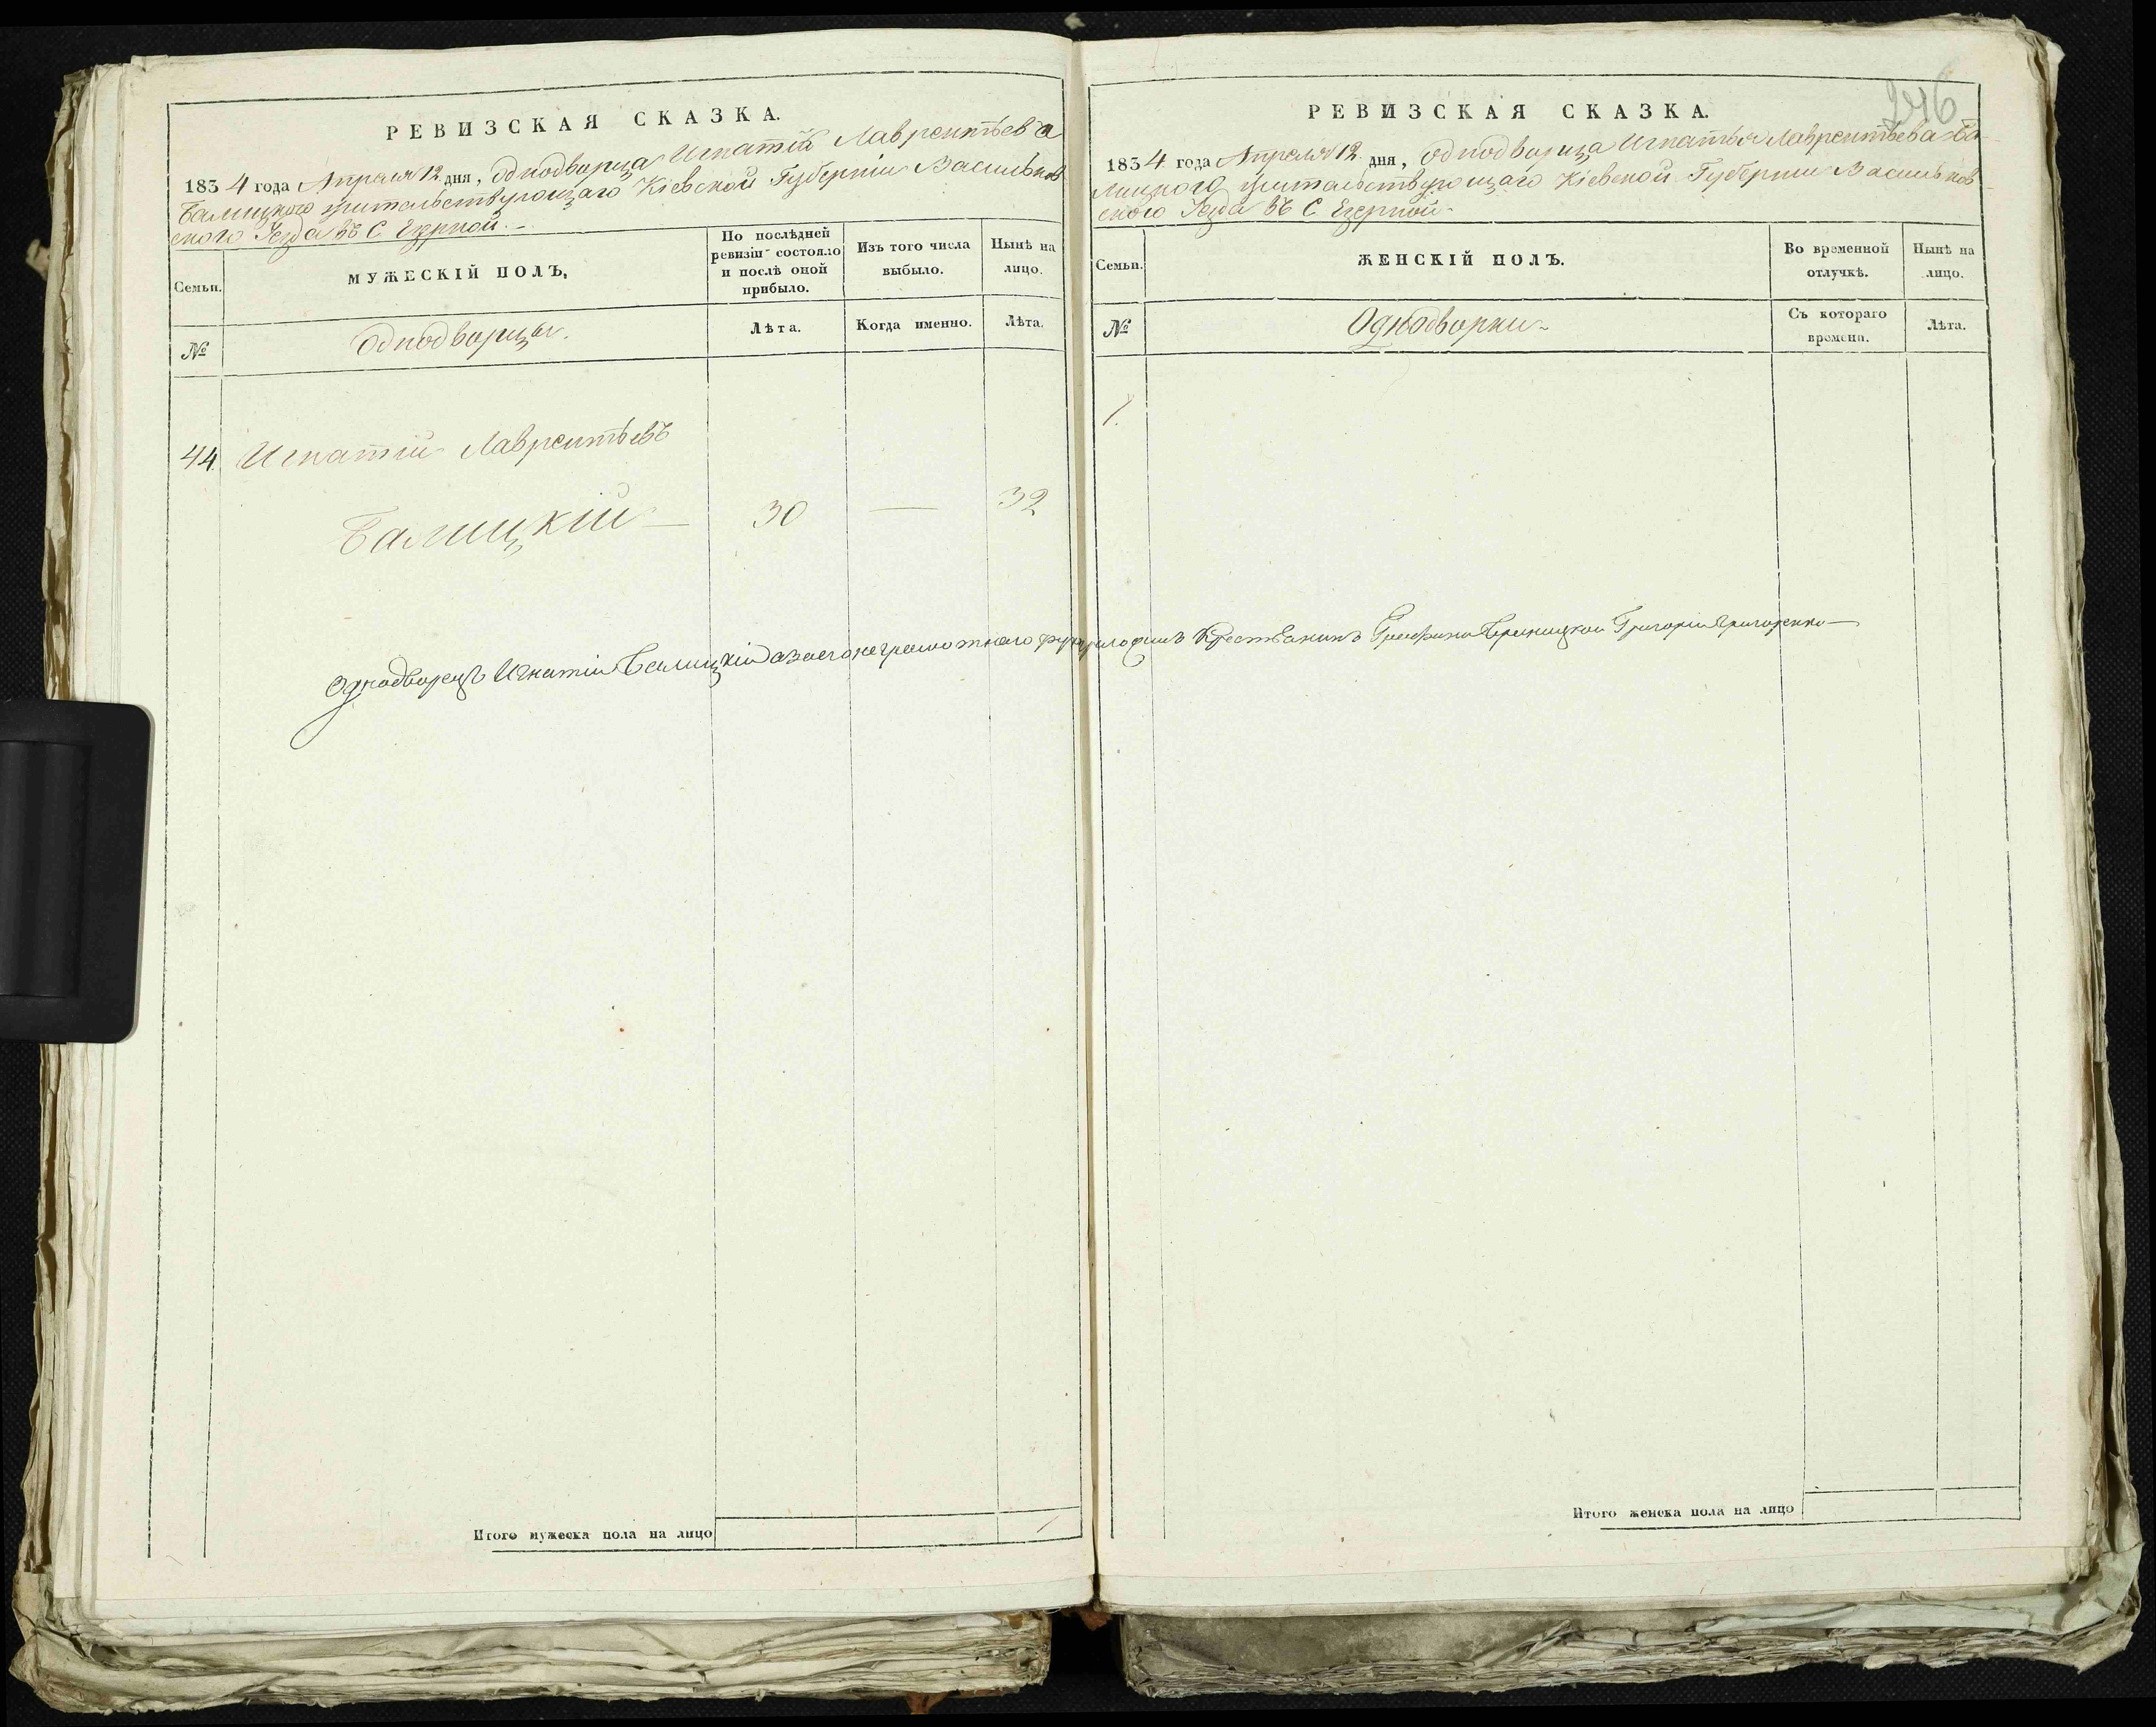 РЕВИЗСКАЯ СКАЗКА.
1834 года Апреля 12 дня, однодворца Игнатій Лаврентьева
Балицкого жительствующаго Кіевской Губерніи Васильков
ского Уезда въ С Езерной.
Семьи.
МУЖЕСКІЙ ПОЛЪ,
По послѣдней
ревизіи состояло
и послѣ оной
прибыло.
Изъ того числа
выбыло.
Нынѣ на
лицо.
№
Однодворцы.
Лѣта.
Когда именно.
Лѣта.
44. Игнатій Лаврентьевъ
Балицкій — 30 — 32
Однодворецъ Игнатій Балицкій а за его неграмотнаго руку приложилъ Крестьянинъ Графини Браницкой Григорій Григоренко —
Итого мужеска пола на лицо 1
246
РЕВИЗСКАЯ СКАЗКА.
1834 года Апреля 12 дня, однодворца Игнатья Лаврентьева Ба-
лицкого жительствующаго Кіевской Губерніи Васильков-
ского Уезда въ С Езерной.
Семьи.
ЖЕНСКІЙ ПОЛЪ.
Во временной
отлучкѣ.
Нынѣ на
лицо.
№
Однодворки
Съ котораго
времени.
Лѣта.
1.
Итого женска пола на лицо